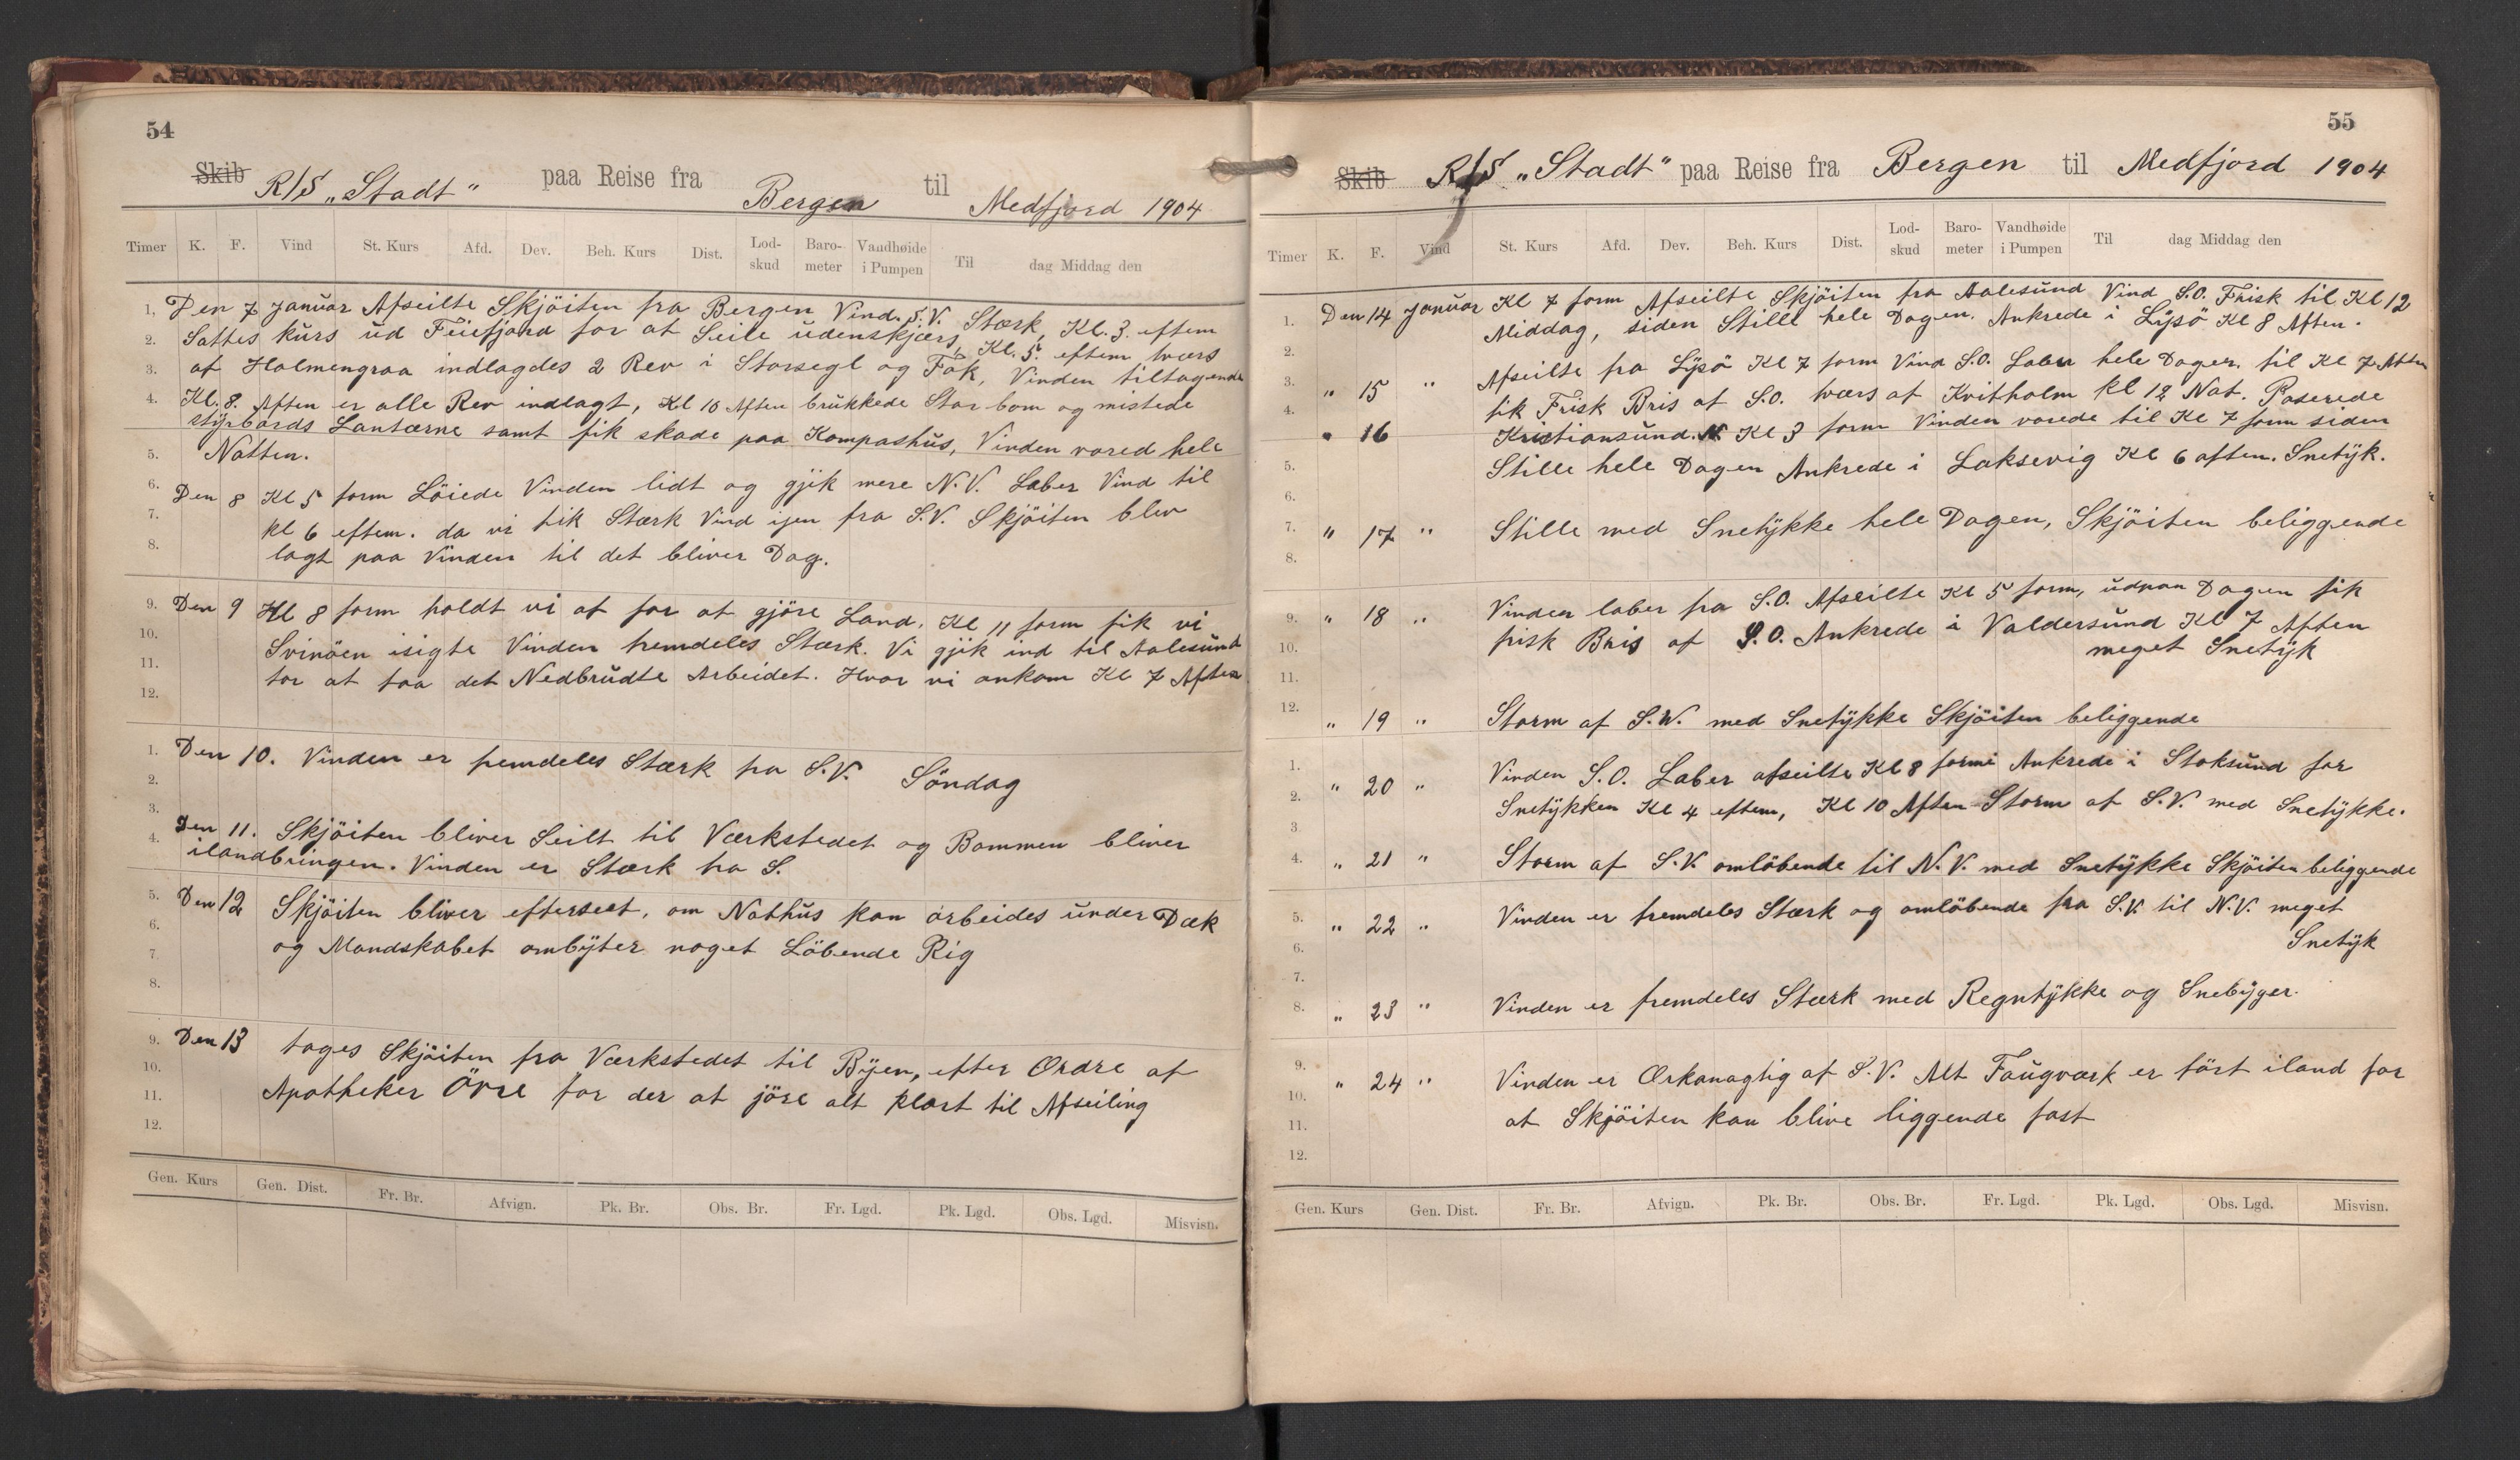 54
Skib R/S „Stadt" paa Reise fra Bergen til Medfjord 1904
Timer K. F. Vind St. Kurs Afd. Dev. Beh. Kurs Dist. Lod-skud Baro-meter Vandhøide i Pumpen Til dag Middag den
1, Den 7 Januar Afseilte Skjöiten fra Bergen Vind. S.V. Stærk, Kl. 3. eftem
2. Sattes kurs ud Feiefjord for at Seile udenskjærs, Kl. 5. eftem twærs
3. af Holmengraa indlagdes 2 Rev i Storsegl og Fok, Vinden tiltagende
4. Kl. 8. Aften er alle Rev indlagt, Kl 10 Aften brukkede Storbom og mistede
styrbords Lantærne samt fik skade paa Kompashus, Vinden vared hele
5. Natten.
6. Den 8 Kl 5 form Löiede Vinden lidt og gjik mere N.V. Laber Vind til
7. kl 6 eftem. da vi fik Stærk Vind igen fra S.V. Skjöiten blev
8. lagt paa Vinden til det bliver Dag.
9. Den 9 Kl 8 form holdt vi af for at gjöre Land. Kl 11 form fik vi
10. Svinöen isigte Vinden fremdeles Stærk. Vi gjik ind til Aalesund
11. for at faa det Nedbrudte Arbeidet. Hvor vi ankom Kl 7 Aften
12.
1. Den 10. Vinden er fremdeles Stærk fra S.V. Söndag
2.
3.
4. Den 11. Skjöiten bliver Seilt til Værkstedet og Bommen bliver
ilandbringen. Vinden er Stærk fra S.
5. Den 12 Skjöiten bliver efterseet, om Nathus kan arbeides under Dæk
6. og Mandskabet ombyter noget Löbende Rig
7.
8.
9. Den 13 tages Skjöiten fra Værkstedet til Byen, efter Ordre af
10. Apotheker Övre for der at jöre alt klart til Afseiling
11.
12.
Gen. Kurs Gen. Dist. Fr. Br. Afvign. Pk. Br. Obs. Br. Fr. Lgd. Pk. Lgd. Obs. Lgd. Misvisn.
55
Skib R/S „Stadt" paa Reise fra Bergen til Medfjord 1904
Timer K. F. Vind St. Kurs Afd. Dev. Beh. Kurs Dist. Lod-skud Baro-meter Vandhøide i Pumpen Til dag Middag den
1. Den 14 Januar Kl 7 form Afseilte Skjöiten fra Aalesund Vind S.O. Frisk til Kl 12
2. Middag, siden Stille hele Dagen. Ankrede i Lysö Kl 8 Aften.
3. " 15 " Afseilte fra Lysö Kl 7 form Vind S.O. Laber hele Dagen. til Kl 7 Aften
4. fik Frisk Bris af S.O. twærs af Kvitholm kl 12 Nat. Paserede
" 16 Kristiansund. N. Kl 3 form Vinden varede til Kl 7 form siden
5. Stille hele Dagen Ankrede i Laksevig Kl 6 aften. Snetyk.
6.
7. " 17 " Stille med Snetykke hele Dagen, Skjöiten beliggende
8.
9. " 18 " Vinden laber fra S.O. Afseilte Kl 5 form, udpaa Dagen fik
10. frisk Bris af S.O. Ankrede i Valdersund Kl 7 Aften
11. meget Snetyk
12. " 19 " Storm af S.W. med Snetykke Skjöiten beliggende
1. " 20 " Vinden S.O. Laber afseilte Kl 8 form Ankrede i Stoksund for
2. Snetykken Kl 4 eftem, Kl 10 Aften Storm af S.V. med Snetykke.
3.
4. " 21 " Storm af S.V. omlöbende til N.V. med Snetykke Skjöiten beliggende
5. " 22 " Vinden er fremdeles Stærk og omlöbende fra S.V. til N.V. meget
6. Snetyk
7.
8. " 23 " Vinden er fremdeles Stærk med Regntykke og Snebyger.
9. " 24 " Vinden er Orkanagtig af S.V. Alt Taugværk er fört iland for
10. at Skjöiten kan blive liggende fast
11.
12.
Gen. Kurs Gen. Dist. Fr. Br. Afvign. Pk. Br. Obs. Br. Fr. Lgd. Pk. Lgd. Obs. Lgd. Misvisn.